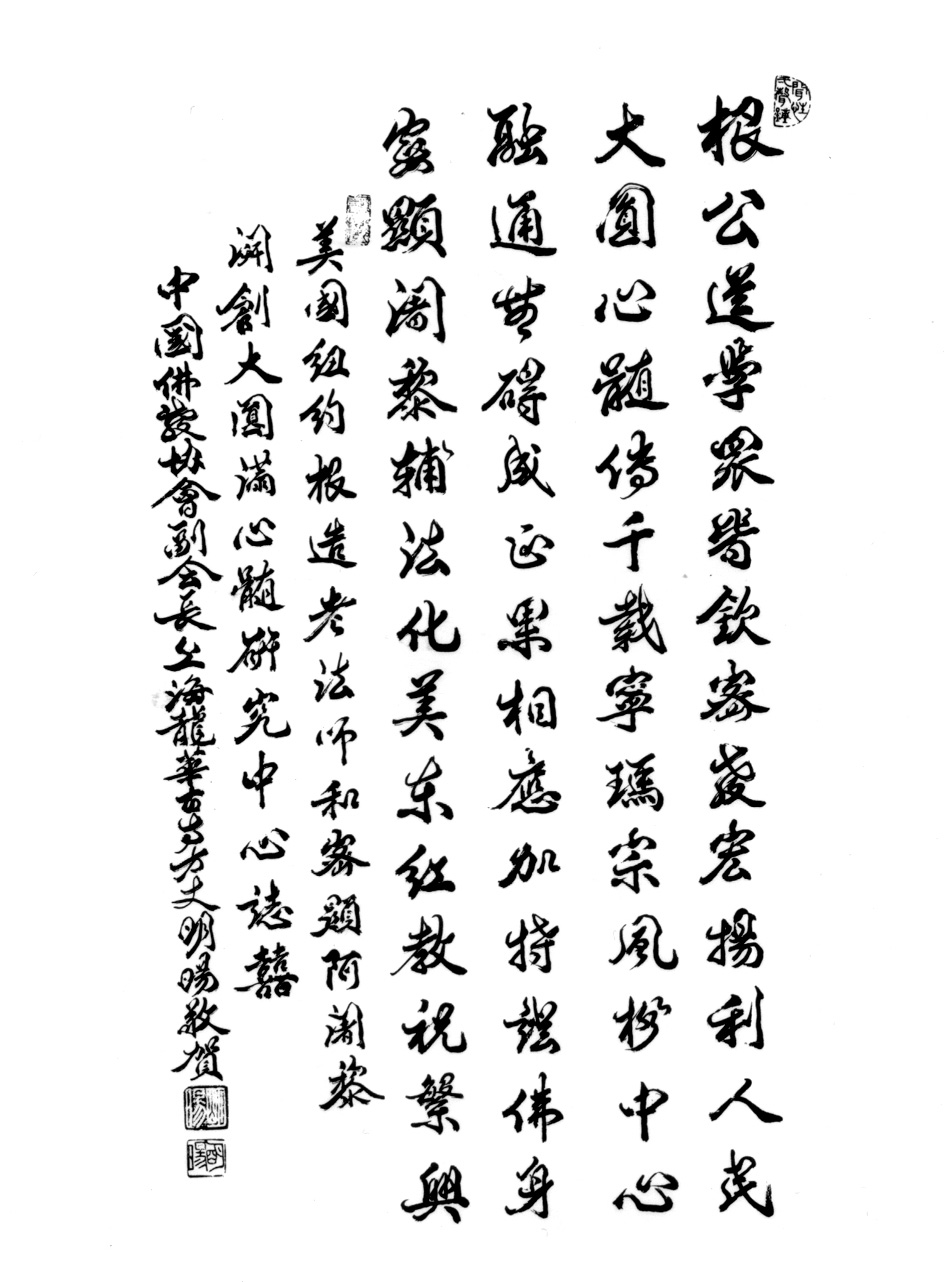 根公道學眾皆欽密教宏揚利人民
大圓心髓傳千載寧瑪宗風於中心
融通無碍成正果相應加持證佛身
密顯闍黎輔法化美東紅教祝繁興
美國紐約根造老法師和密顯阿闍黎
開創大圓滿心髓研究中心誌囍
中國佛教協會副会長上海龍華古寺方丈明暘敬賀